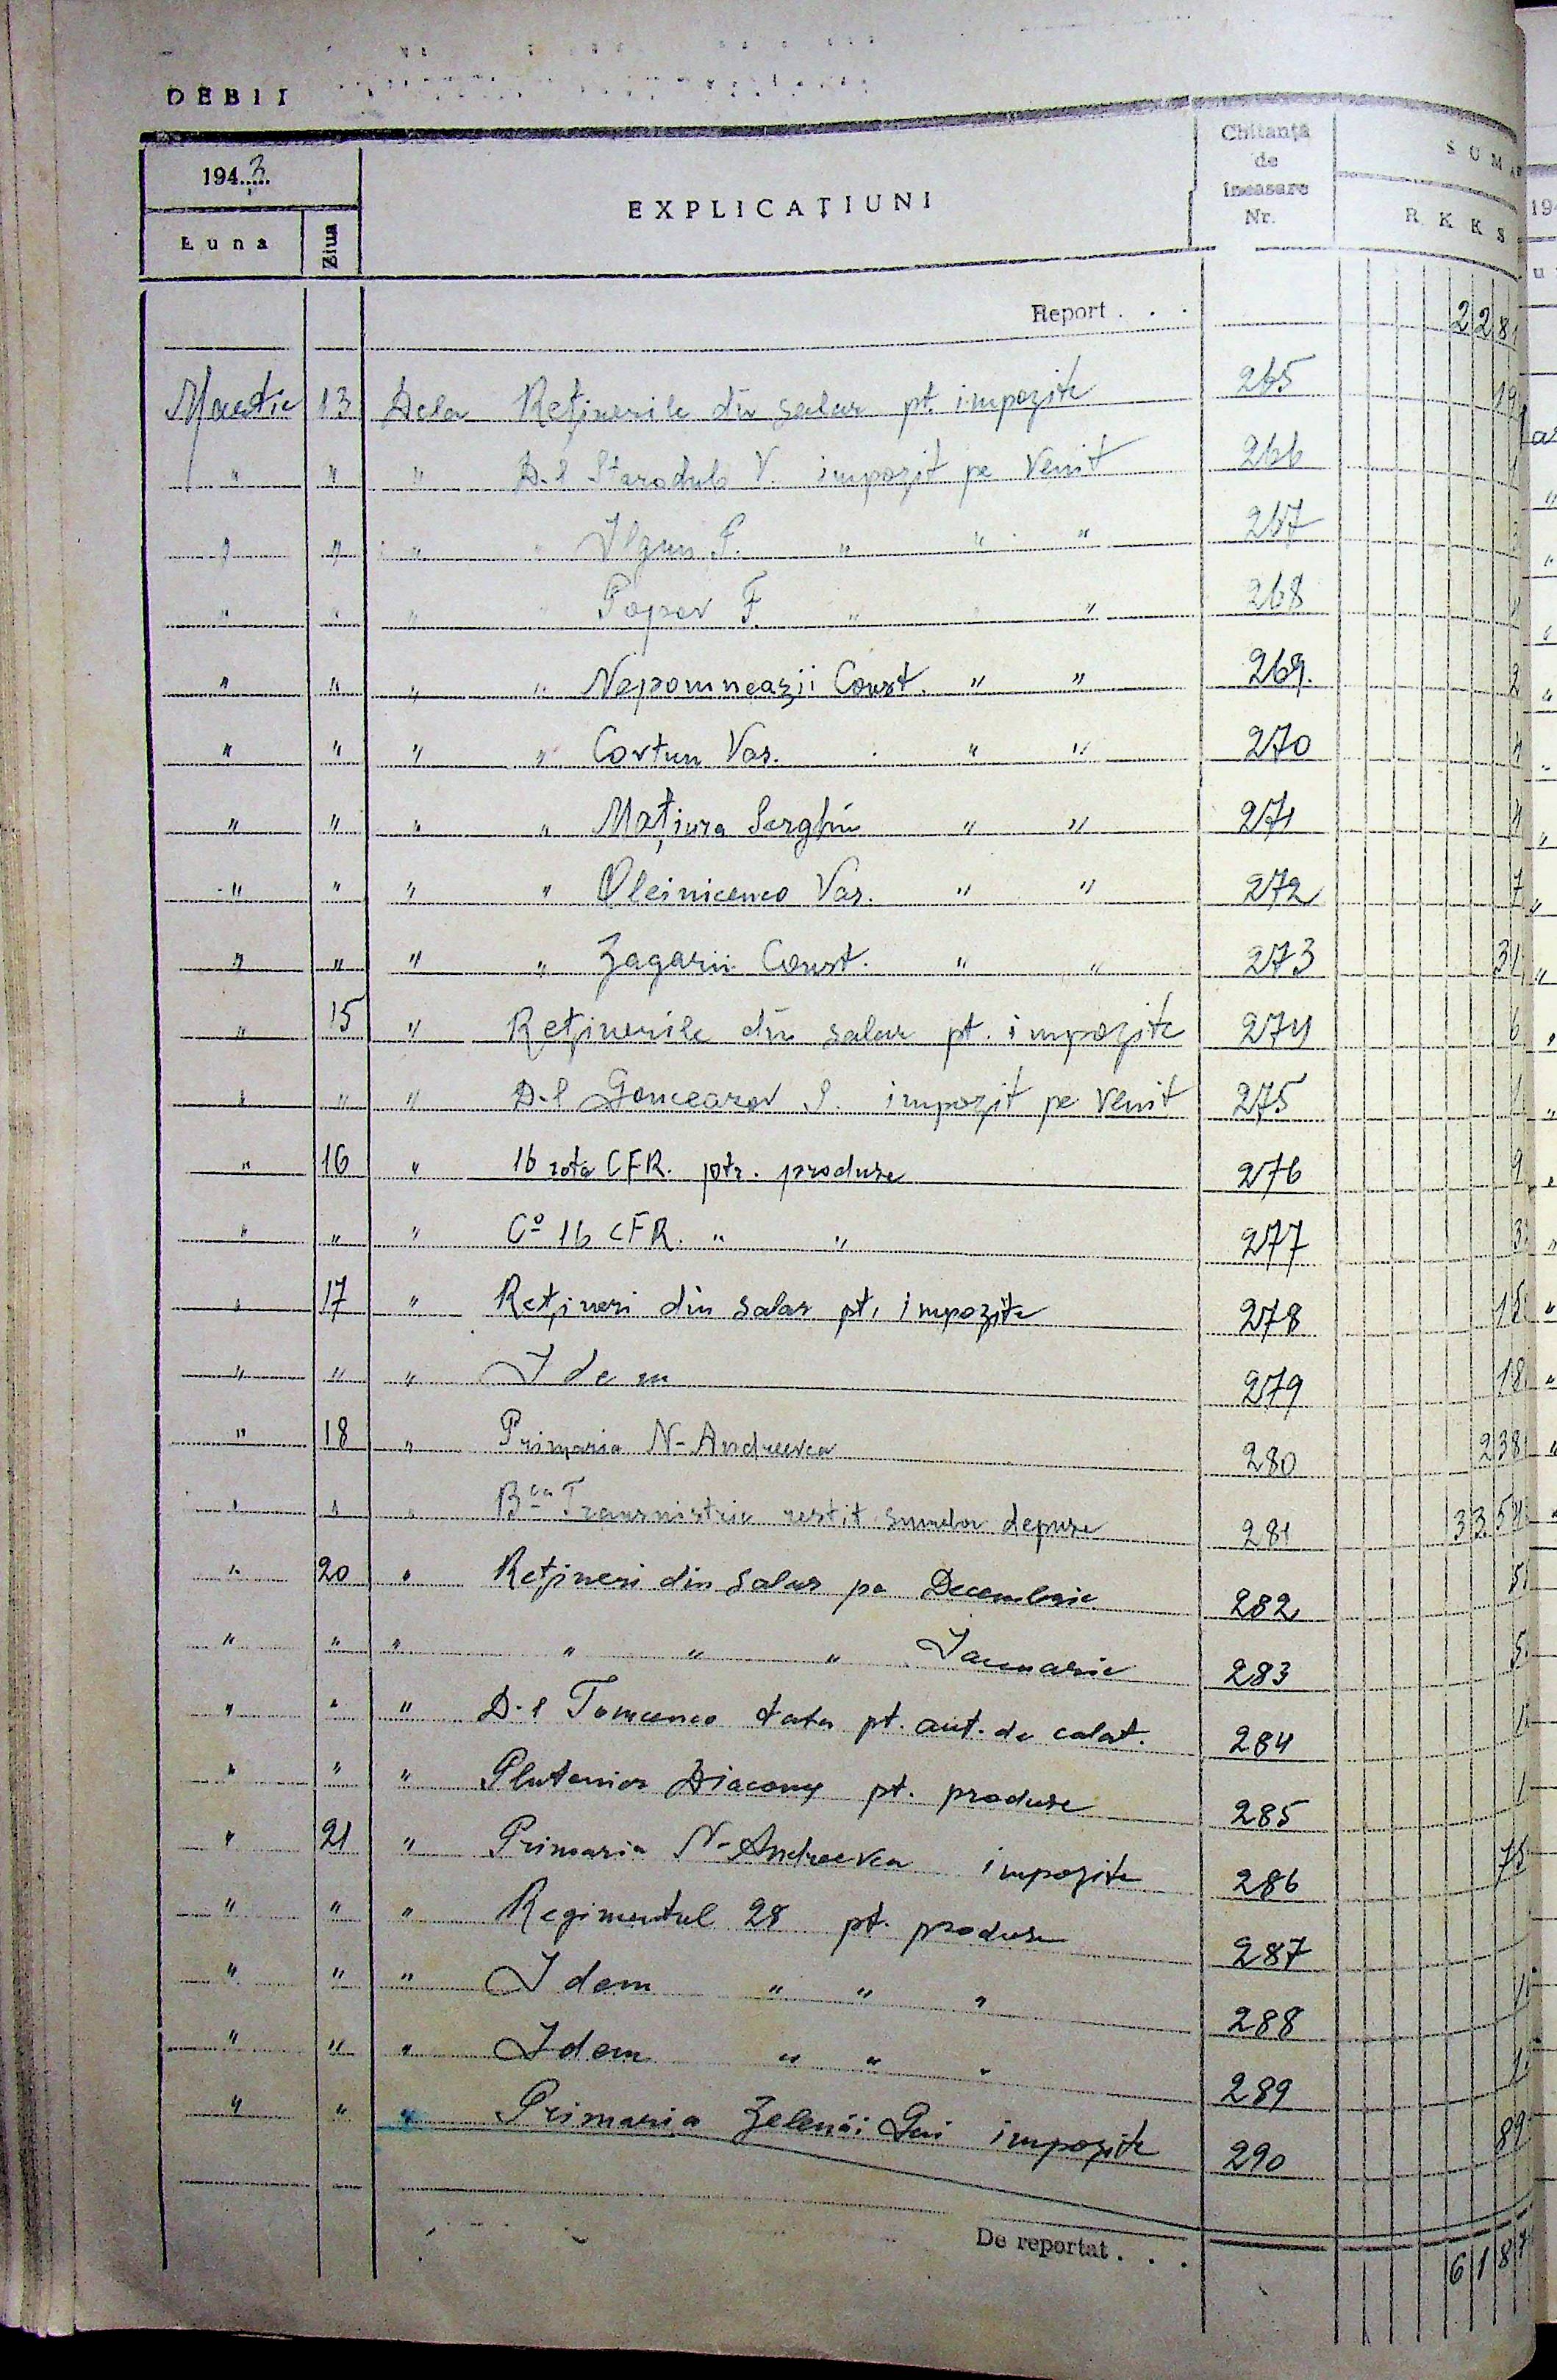 DEBIT
194 3
Luna Ziua EXPLICAŢIUNI Chitanţă de încasare Nr. SUMA RKKS
Report . . . 2 2 8
Martie 13 Dela Reţinerile din salar pt. impozite 265 19
" " " D-l Starodub V. impozit pe venit 266
" " " " P. " " " 267
" " " " Popov F. " " " 268
" " " " Nepomneazii Const. " " 269. 2
" " " " Cortun Vas. " " 270 4
" " " " Maţiura Serghiu " " 271 4
" " " " Oleinicenco Vas. " " 272 7
" " " " Zagarii Const. " " 273 31
" 15 " Reţinerile din salar pt. impozite 274 6
" " " D-l Goncearov impozit pe venit 275 1
" 16 " 16 rota CFR. ptr. produse 276 9
" " " Cº 16 CFR. " " 277 3
" 17 " Reţineri din salar pt. impozite 278 18
" " " Idem 279 18
" 18 " Primaria N-Andreevca 280 2 3 8
" " " B-ca Transnistria restit sumelor depuse 281 3 3 5 4
" 20 " Reţineri din salar pe Decembrie 282 5
" " " " " " Ianuarie 283 5
" " " D-l Tomcenco taxa pt. aut. de calat. 284 1
" " " Plutonier Diaconu pt. produse 285 1
" 21 " Primaria N-Andreevca impozite 286 75
" " " Regimentul 28 pt. produse 287
" " " Idem " " " 288 1
" " " Idem " " " 289 1
" " " Primaria Zelenâi Gai impozite 290 89
De reportat . . . 6 1 8 7